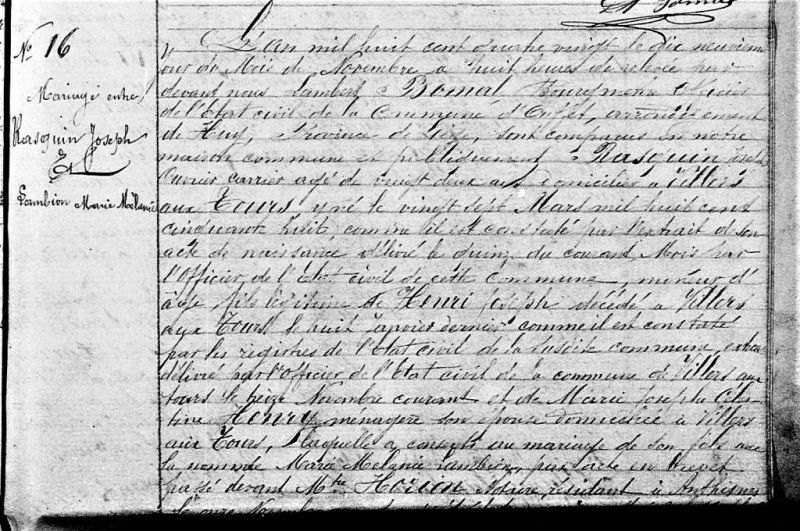 N° 16
Mariage entre
Rasquin Joseph
Et
Lambion Marie Mélanie
L'An mil huit cent quatre vingt le dix neuvième
jour du Mois de Novembre a huit heures de relevée par
devant nous Lambert Bomal Bourgmestre Officier
de l'Etat civil de la Commune d'Ouffet, arrondissement
de Huy, Province de Liège, sont comparus en notre
maison commune et publiquement Rasquin Joseph
Ouvrier carrier agé de vingt deux ans domicilié à Villers
aux Tours, y né le vingt sept Mars mil huit cent
cinquante huit, comme il est constaté par l'extrait de son
acte de naissance délivré le quinze du courant Mois par
l'Officier de l'Etat civil de cette commune, mineur d'
âge fils légitime de Henri Joseph décédé à Villers
aux Tours le huit Janvier dernier comme il est constaté
par les registres de l'Etat civil de la susdite commune, extrait
délivré par l'Officier de l'Etat civil de la commune de Villers aux
tours le seize Novembre courant et de Marie Josephe Céles-
tine Henry ménagère son épouse domiciliée à Villers
aux Tours, laquelle a consenti au mariage de son fils avec
la nommée Marie Mélanie Lambion, par acte en brevet
passé devant Mtre Notaire, résidant à Anthisnes